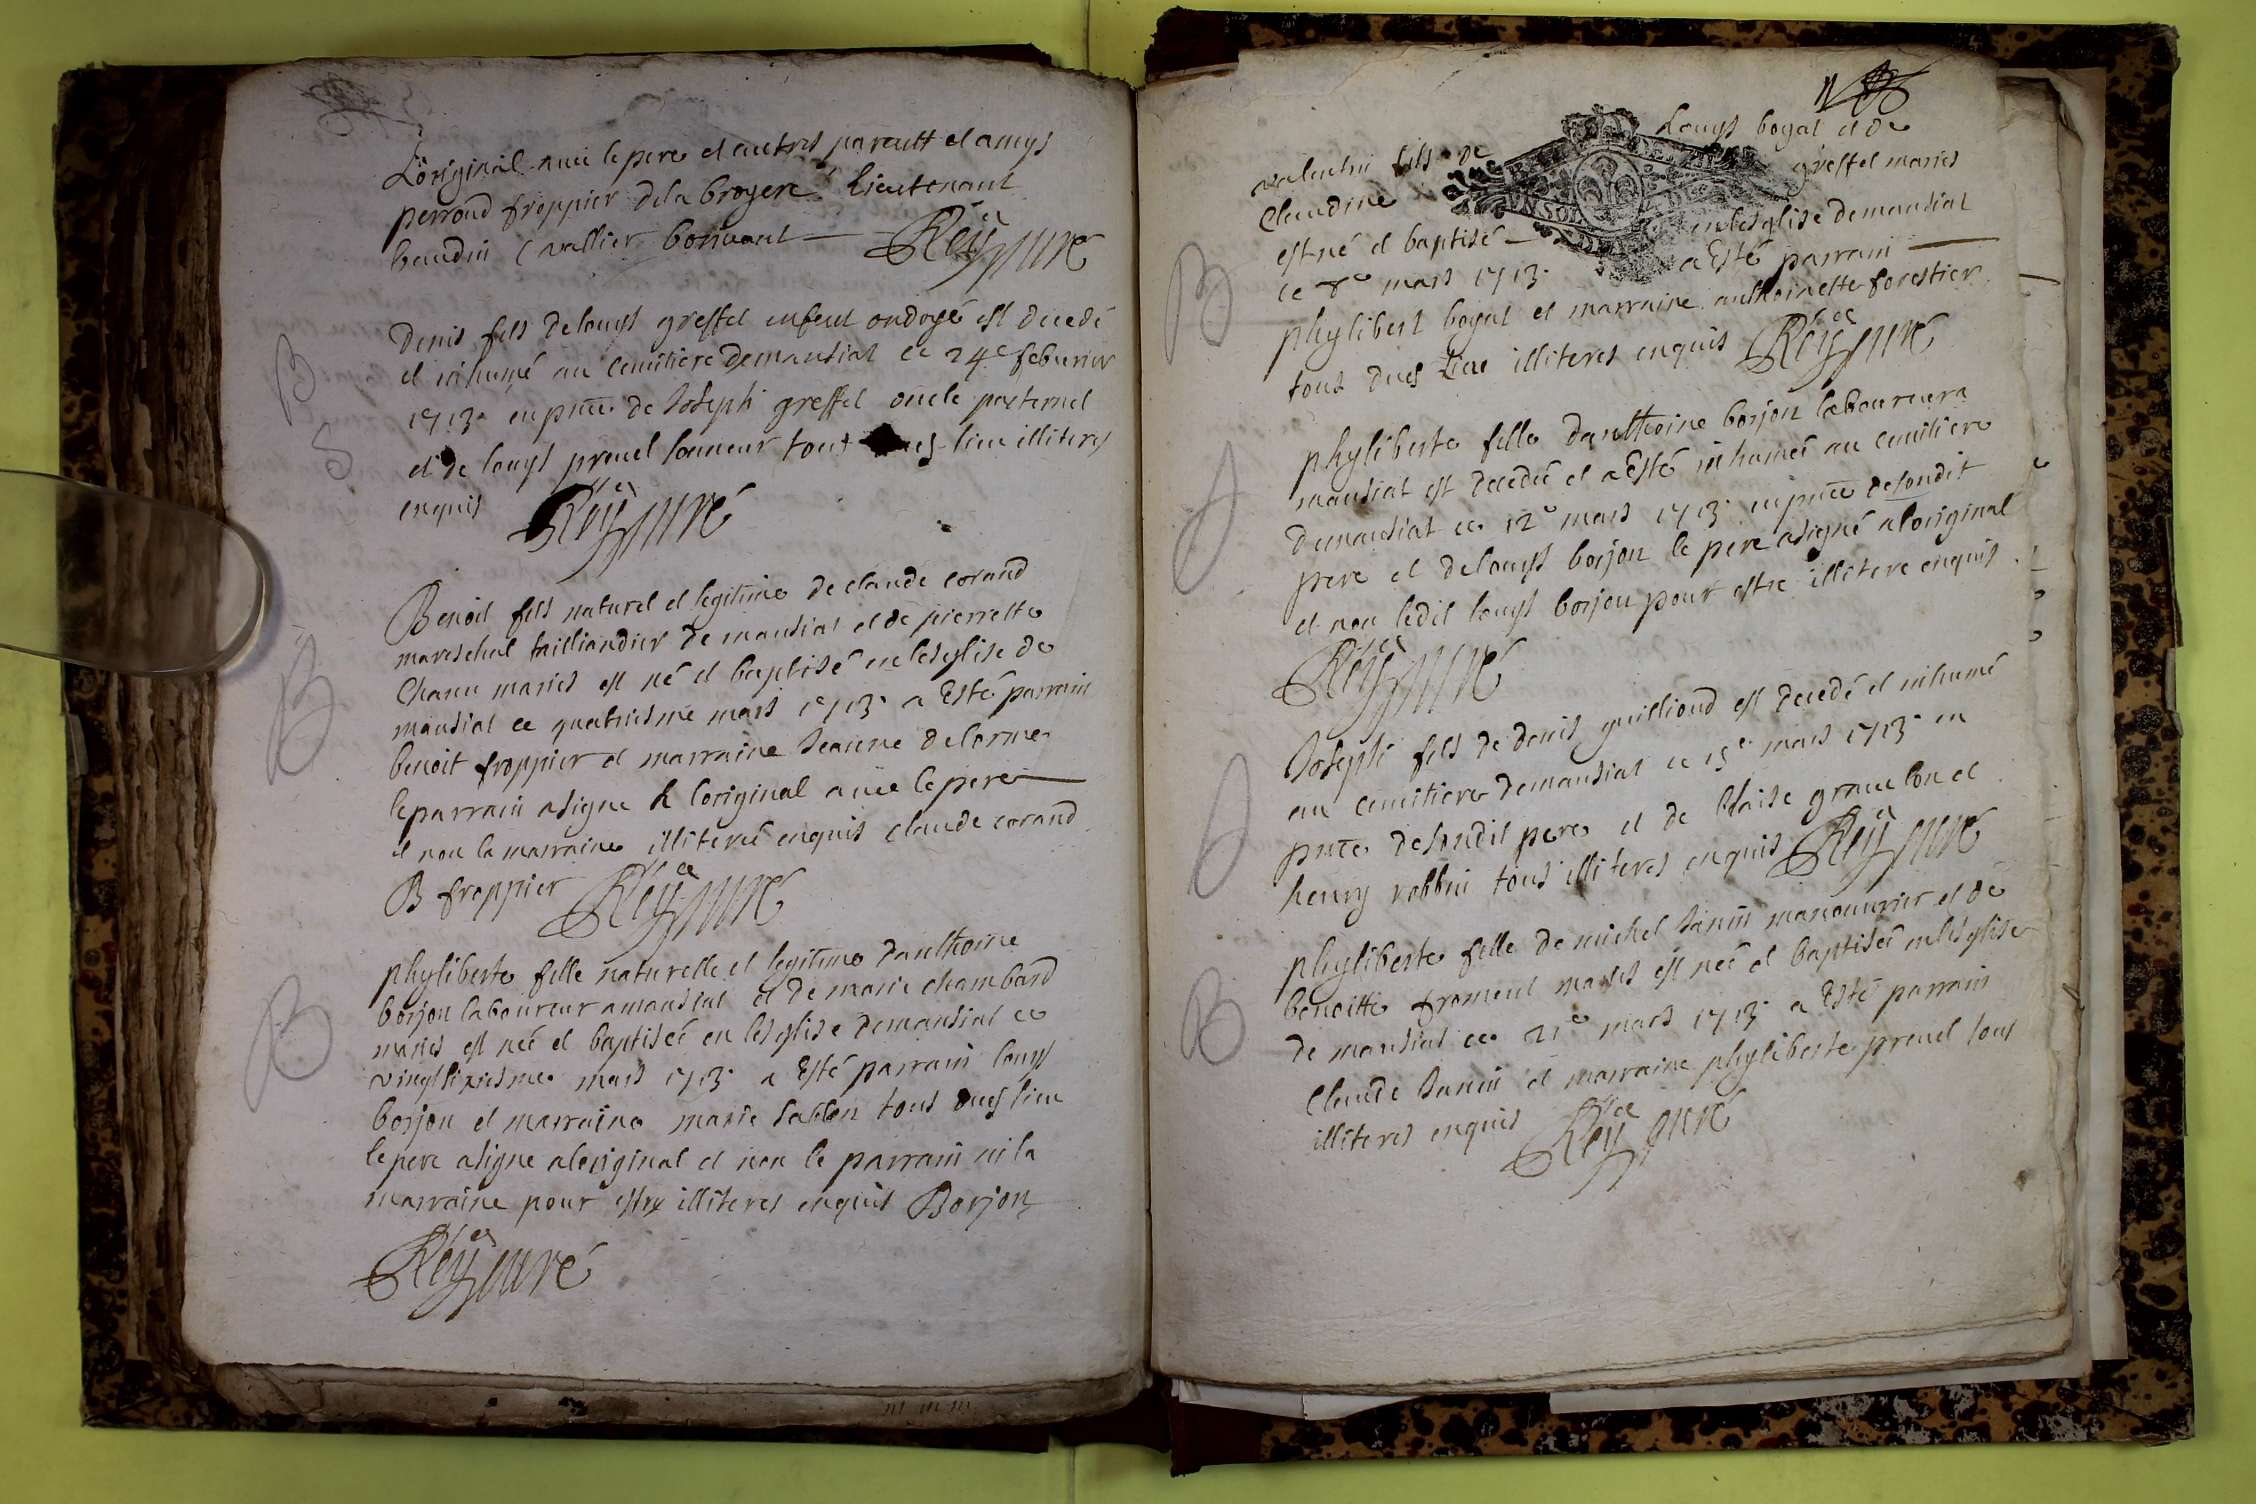 Loriginal avec le pere et autres parentt et amys
perroud froppier dela broyere lieutenant
baudin C vallier bonvant
Rey curé
Denis fils de louys greffet enfent ondoyé est decedé
et inhumé au cemitiere demansiat ce 24e feburier
1713. en pnce de Joseph greffet oncle paternel
et de louys prevel sonneur tous dues lieu illiteres
enquis
Rey curé
Benoit fils naturel et legitime de claude corand
mareschal tailliandier de mansiat et de pierrette
Chanu maries est né et baptisé en lesglise de
mansiat ce quatriesme mars 1713. a Esté parrain
benoit froppier et marraine Jeanne delorme
le parrain asigne a loriginal avec le pere
et non la marraine illiteree enquis claude corand
B froppier Rey curé
phyliberte fille naturelle et legitime danthoine
borjon laboureur amansiat et de marie chambard
maries est neé et baptiseé en lesglise demansiat ce
vingtsixiesme mars 1713. a Esté parrain louys
borjon et marraine marie sablon tous dues lieu
le pere asigne aloriginal et non le parrain ni la
marraine pour estre illiteres enquis Borjon
Rey curé
11
valentin fils de Louys bogat et de
Claudine greffet maries
est né et baptisé en lesglise demansiat
ce 8e mars 1713. a Esté parrain
phylibert bogat et marraine anthoinette forestier
tous dues lieu illiteres enquis Rey curé
phyliberte fille danthoine borjon laboureur a
mansiat est decedeé et a Esté inhumeé au cemitiere
demansiat ce 12e mars 1713. en pnce desondit
pere et delouys borjon le pere asigné a loriginal
et non ledit louys borjon pour estre illitere enquis
Rey curé
Joseph fils de denis guillioud est decedé et inhumé
au cemitiere demansiat ce 15e mars 1713. en
pnce desondit pere et de blaise gravelon et
henry robbin tous illiteres enquis Rey curé
phyliberte fille de michel Janin manouvrier et de
benoitte froment maries est neé et baptiseé en lesglise
de mansiat ce 21e mars 1713. a Esté parrain
Claude Janin et marraine phyliberte prevel tous
illiteres enquis Rey curé